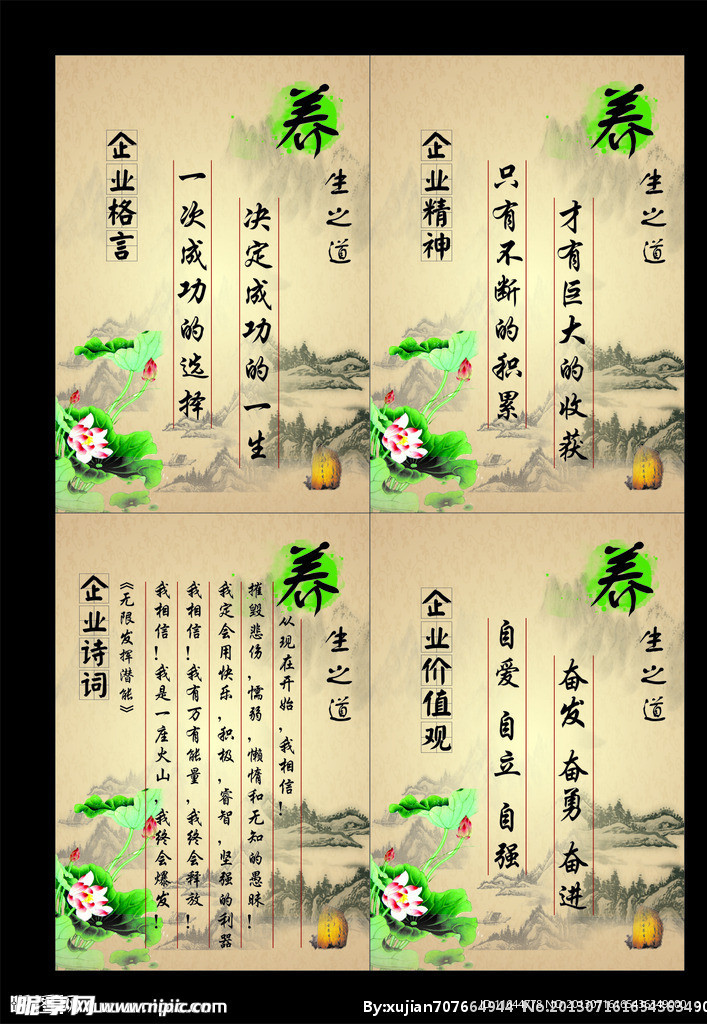 养
生之道
企业格言
一次成功的选择
决定成功的一生
养
生之道
企业精神
只有不断的积累
才有巨大的收获
养
生之道
企业诗词
《无限发挥潜能》
我相信！我是一座火山,我终会爆发！
我相信！我有万有能量,我终会释放！
我定会用快乐,积极,睿智,坚强的利器
摧毁悲伤,懦弱,懒惰和无知的愚昧！
从现在开始,我相信！
养
生之道
企业价值观
自爱 自立 自强
奋发 奋勇 奋进
昵享网 www.nipic.com
By:xujian707664944